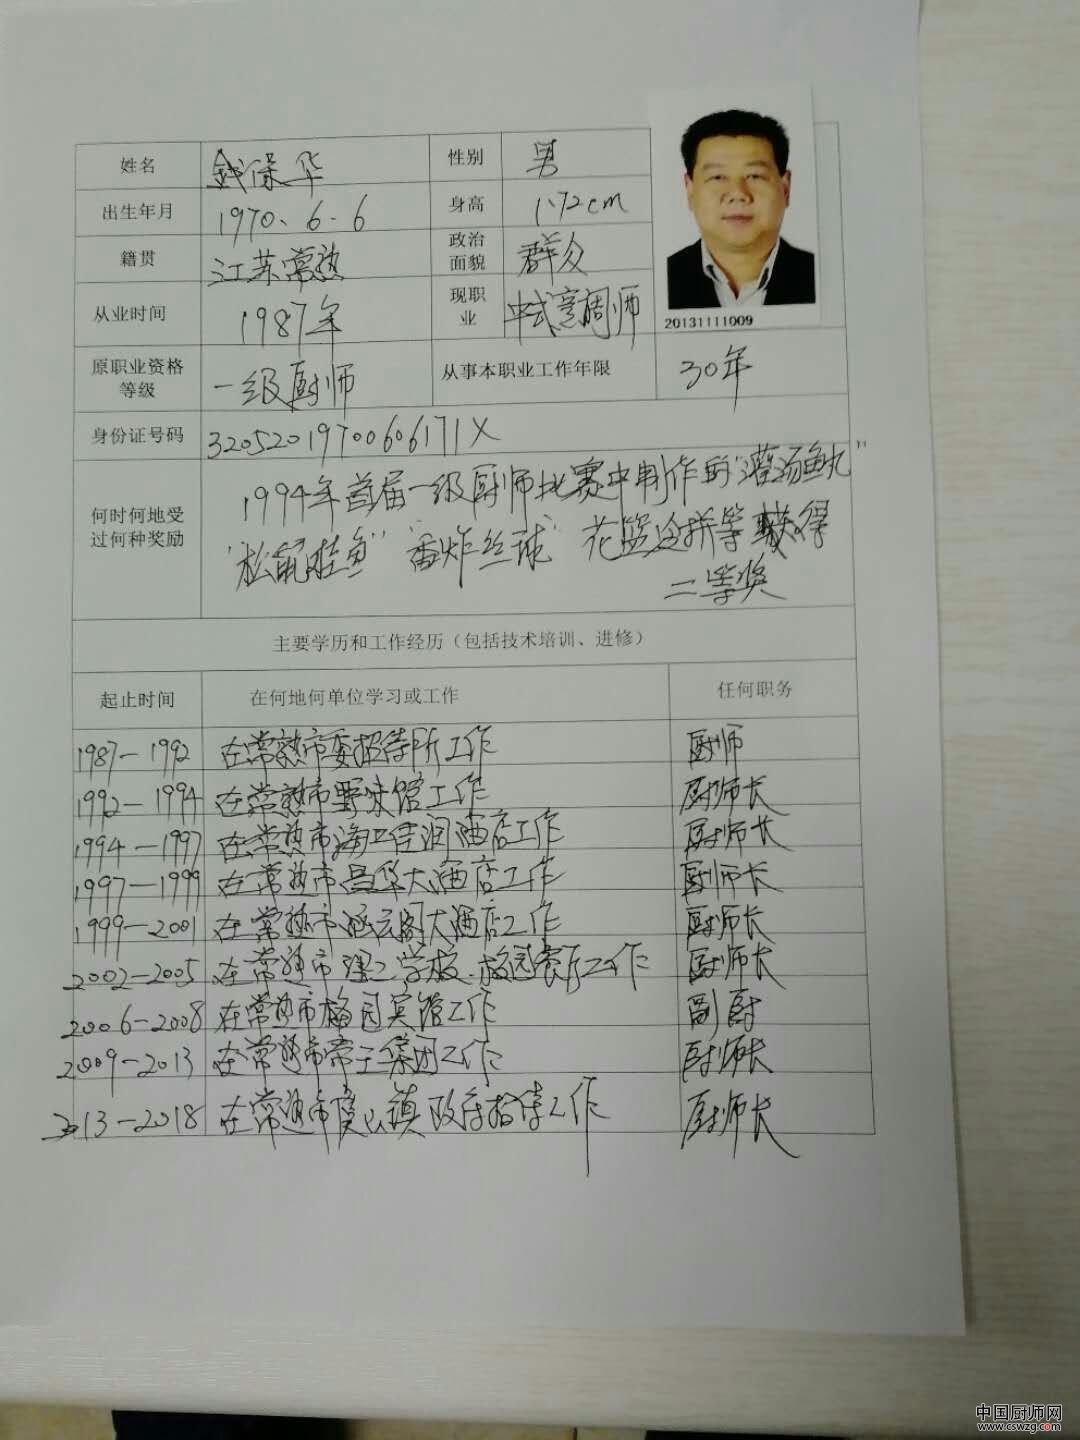 姓名 钱保华 性别 男
出生年月 1970.6.6 身高 1.72cm
籍贯 江苏常熟 政治面貌 群众
从业时间 1987年 现职业 中式烹调师
20131111009
原职业资格等级 一级厨师 从事本职业工作年限 30年
身份证号码 32052019700606171X
何时何地受过何种奖励
1994年首届一级厨师比赛中制作的"灌汤鱼丸"
"松鼠桂鱼" 香炸丝球" 花篮冷拼等获得
二等奖
主要学历和工作经历（包括技术培训、进修）
起止时间 在何地何单位学习或工作 任何职务
1987—1992 在常熟市委招待所工作 厨师
1992—1994 在常熟市野味馆工作 厨师长
1994—1997 在常熟市海 佳润酒店工作 厨师长
1997—1999 在常熟市昌华大酒店工作 厨师长
1999—2001 在常熟市涵元阁大酒店工作 厨师长
2002—2005 在常熟市理工学校.校园餐厅工作 厨师长
2006—2008 在常熟市梅园宾馆工作 副厨
2009—2013 在常熟市常工集团工作 厨师长
2013—2018 在常熟市虞山镇政府招待工作 厨师长
中国厨师网
www.cswzg.com